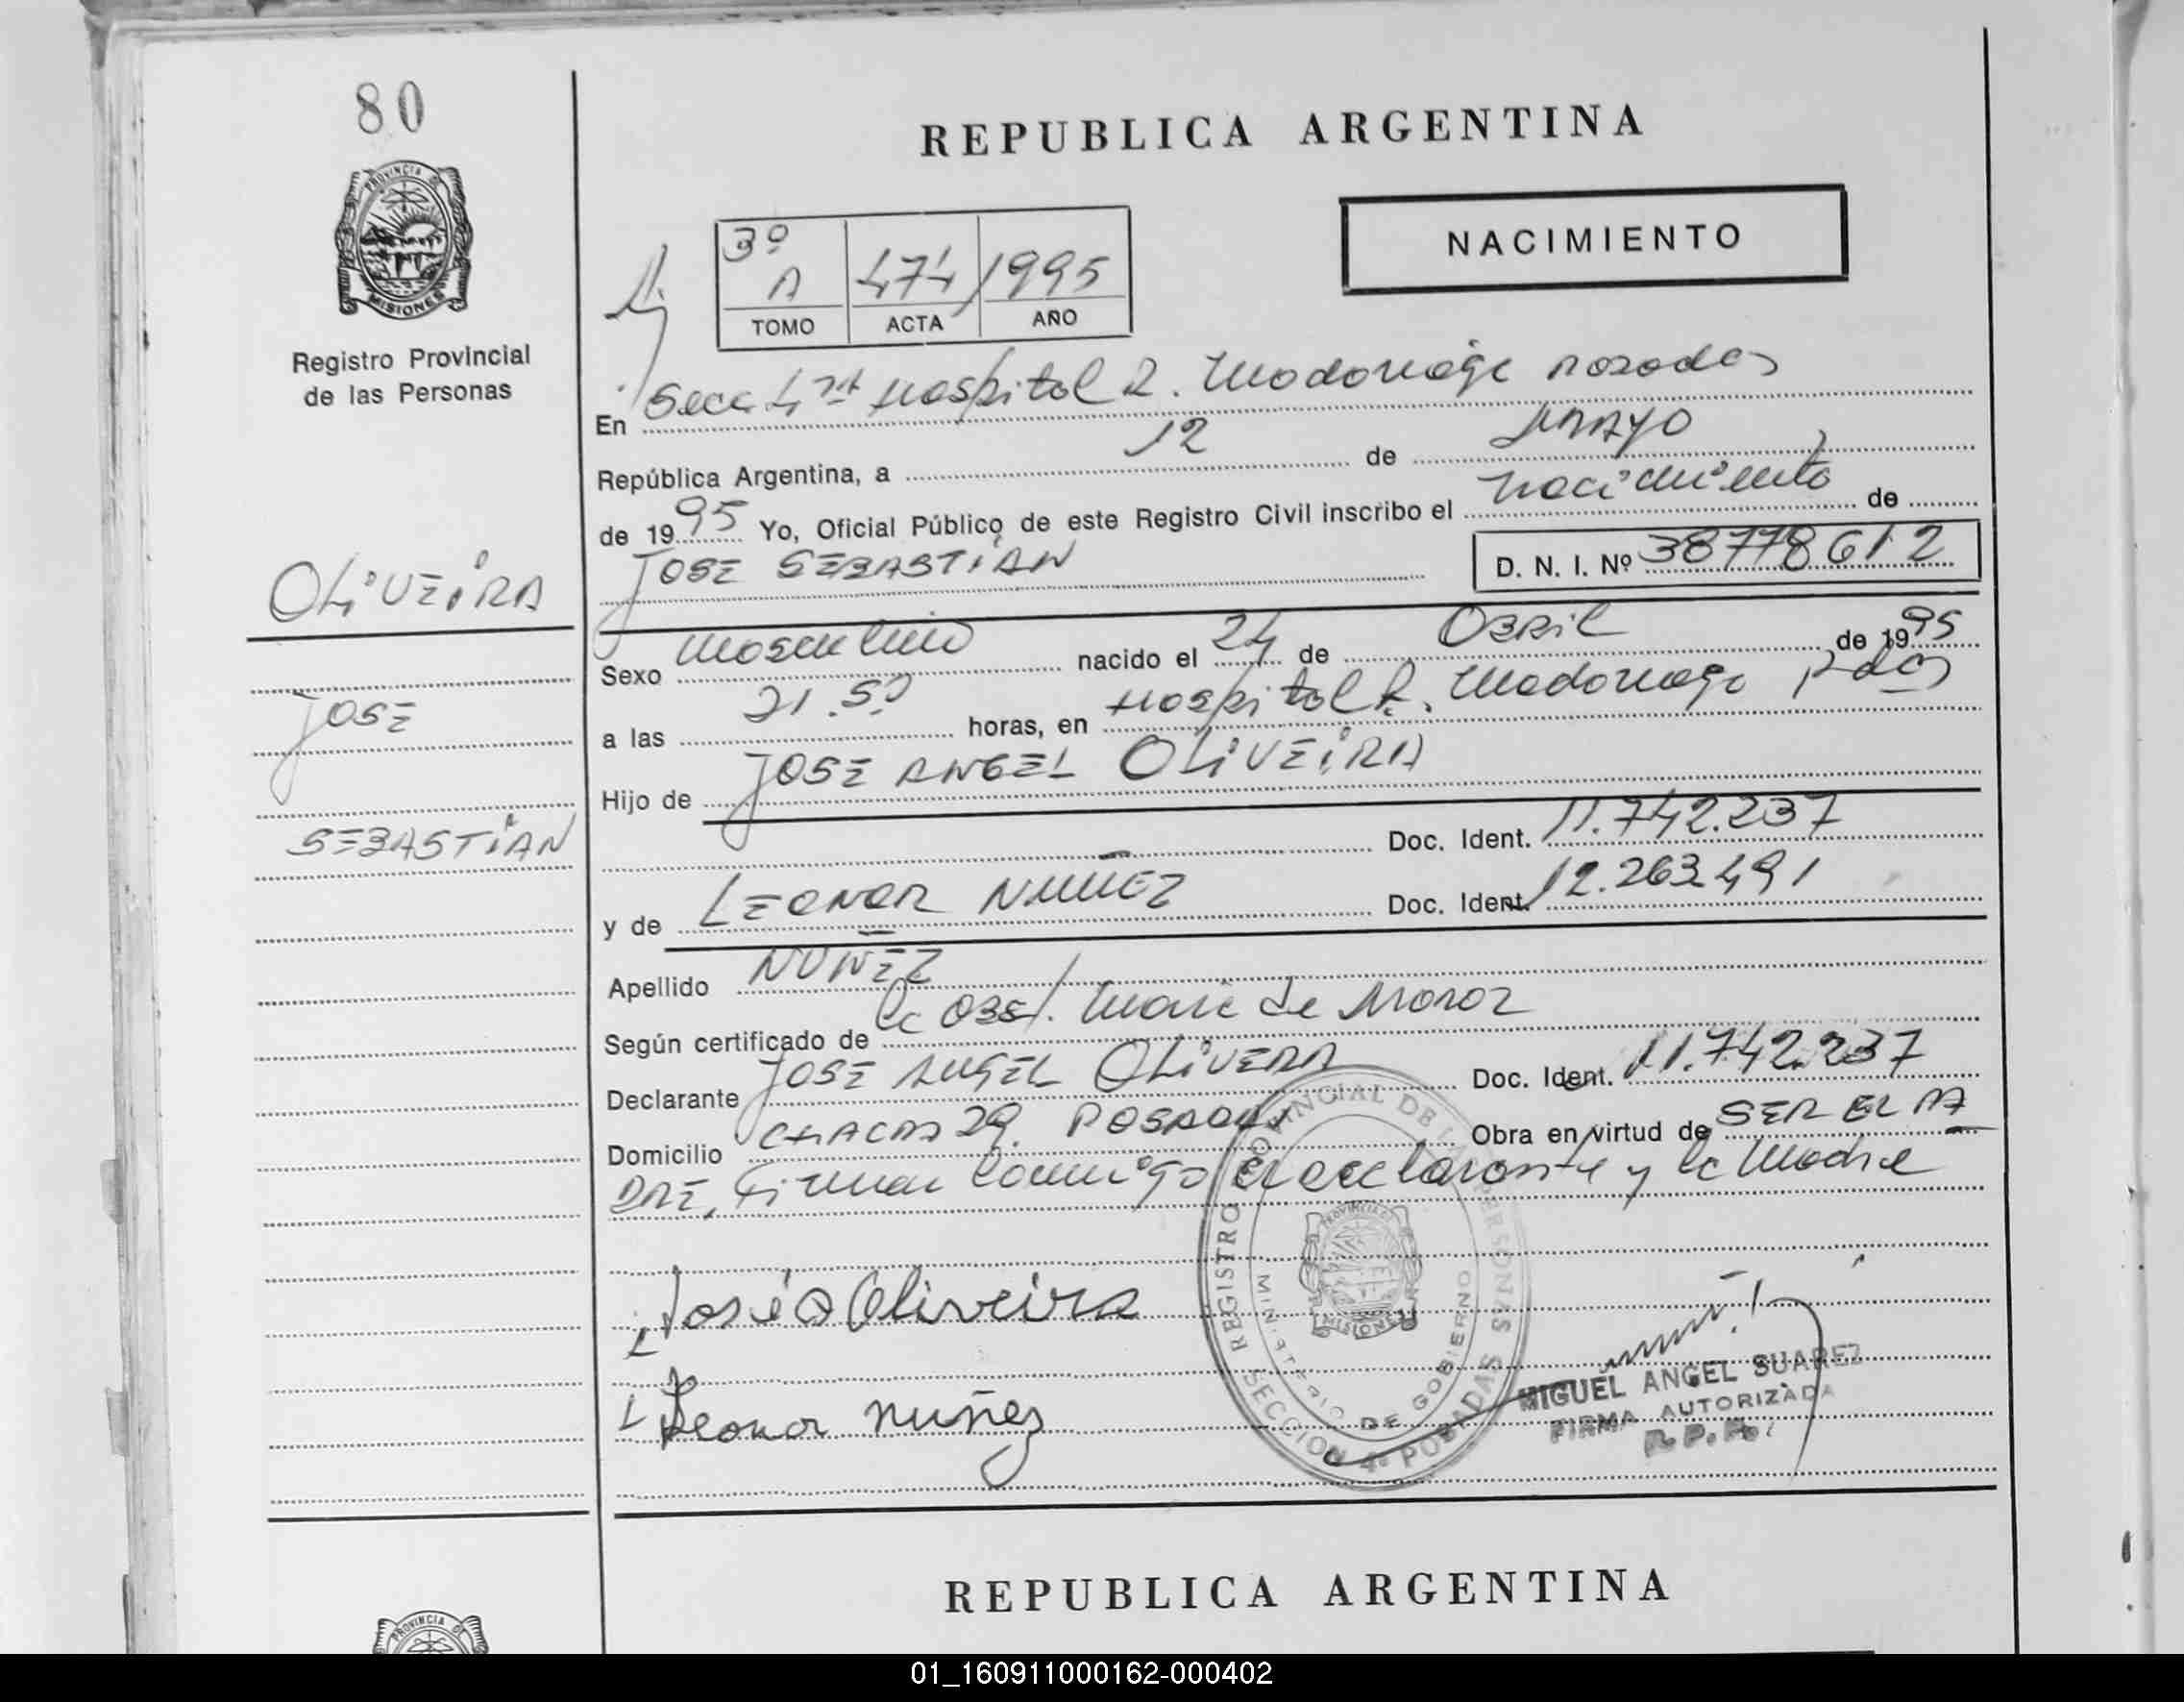 80
PROVINCIA DE
MISIONES
Registro Provincial
de las Personas
OLIVEIRA
JOSE
SEBASTIAN
REPUBLICA ARGENTINA
NACIMIENTO
3º
A 474 1995
TOMO ACTA AÑO
En Secc 4ta Hospital R. Madariaga Posadas
República Argentina, a 12 de MAYO
de 1995 Yo, Oficial Público de este Registro Civil inscribo el nacimiento de
JOSE SEBASTIAN D. N. I. Nº 38778612
Sexo masculino nacido el 24 de ABRIL de 1995
a las 21.50 horas, en Hospital R. Madariaga Pdas
Hijo de JOSE ANGEL OLIVEIRA
Doc. Ident. 11.742.237
y de LEONOR NUÑEZ Doc. Ident. 12.263.491
Apellido NUÑEZ
Según certificado de la Obst. de
Declarante JOSE ANGEL OLIVERA Doc. Ident. 11.742.237
Domicilio CHACRA 29. POSADAS Obra en virtud de SER EL PA
DRE, Firman conmigo el declarante y la Madre
José A Oliveira
Leonor nuñez
REGISTRO PROVINCIAL DE LAS PERSONAS
MINISTERIO DE GOBIERNO
PROVINCIA DE
MISIONES
SECCION 4ª POSADAS
MIGUEL ANGEL SUAREZ
FIRMA AUTORIZADA
R. P. P.
REPUBLICA ARGENTINA
PROVINCIA D
01_160911000162-000402